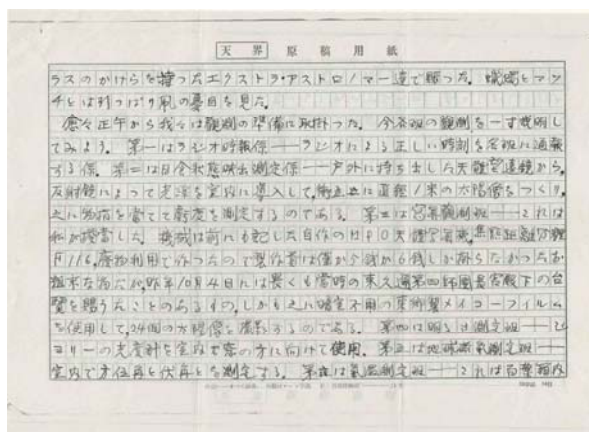 天界 原稿用紙
ラスのかけらを持ったエクストラ・アストロノマー達で賑った。蝋燭とマッ
チとは引っぱり凧の憂目を見た。
愈々正午から我々は観測の準備に取掛った。今各班の観測を一寸説明し
てみよう。第一はラジオ時報係——ラジオによる正しい時刻を各班に通報
する係。第二は日食状態映出測定係——戸外に持ち出した天体望遠鏡から、
反射鏡によって光線を室内に導入して、直径1米の太陽像をつくり、
之に物指を当てて蝕度を測定するのである。第三は写真観測班——これは
私が担当した。機械は前にも記した自作のHPO天体写真機、焦点距離
F116、廃物利用で作ったので製作費は僅か5銭か6銭しかなかったお
粗末な為だが、昨年10月4日には畏くも当時の東久邇第四師団長宮殿下の台
覧を賜うたことのあるもの、しかも之に暗室不用の メイコーフィルム
を使用して、24個の太陽像を撮影するのである。第四は明るさ測定班——
の光度計を室内で窓の方に向けて使用。第五は地球磁気測定班——
室内で方位角と伏角とを測定する。第六は気温測定班——これは百葉箱内